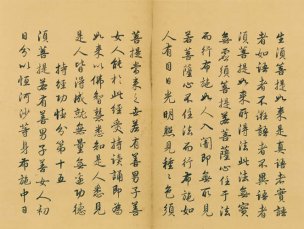 生須菩提如來是真語者實語
者如語者不誑語者不異語者
須菩提如來所得法此法無實
無虛須菩提若菩薩心住於法
而行布施如人入闇即無所見
若菩薩心不住法而行布施如
人有目日光明照見種〻色須
菩提當來之世若有善男子善
女人能於此經受持讀誦即為
如來以佛智慧悉知是人悉見
是人皆得成就無量無邊功德
持經功德分第十五
須菩提若有善男子善女人初
日分以恒河沙等身布施中日